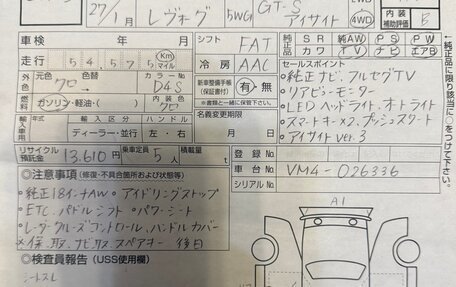 27/1月 レヴォーグ 5WG GT-S アイサイト 4WD 内装 補助評価 B
車検 年 月 シフト FAT 純正品 SR 純正AW PS PW
カワ TV ナビ エアB
走行 54575 Km マイル 冷房 AAC セールスポイント
元色 色替 カラーNo 新車整備手帳(保証書付) 有・無
クロ D4S
・純正ナビ、フルセグTV
・リアビューモニター
燃料 ガソリン・軽油・( ) 内装色 クロ (書類と一緒に保管下さい)
・LEDヘッドライト、オートライト
輸入車用 輸入区分 ハンドル 名義変更期限
・スマートキー×2、プッシュスタート
ディーラー・並行 左・右 月 日
・アイサイト ver.3
リサイクル預託金 13,610円 乗車定員 5人 積載量 t 登録No.
車台No. VM4-026336
シリアルNo.
◎注意事項(修復・不具合箇所および状態等)
・純正18インチAW ・アイドリングストップ
・ETC、パドルシフト ・パワーシート
・レーダークルーズコントロール、ハンドルカバー
×保、取、ナビ取、スペアキー 後日
A1
◎検査員報告(USS使用欄)
シートスレ
純正品に限り該当に○をつけて下さい。